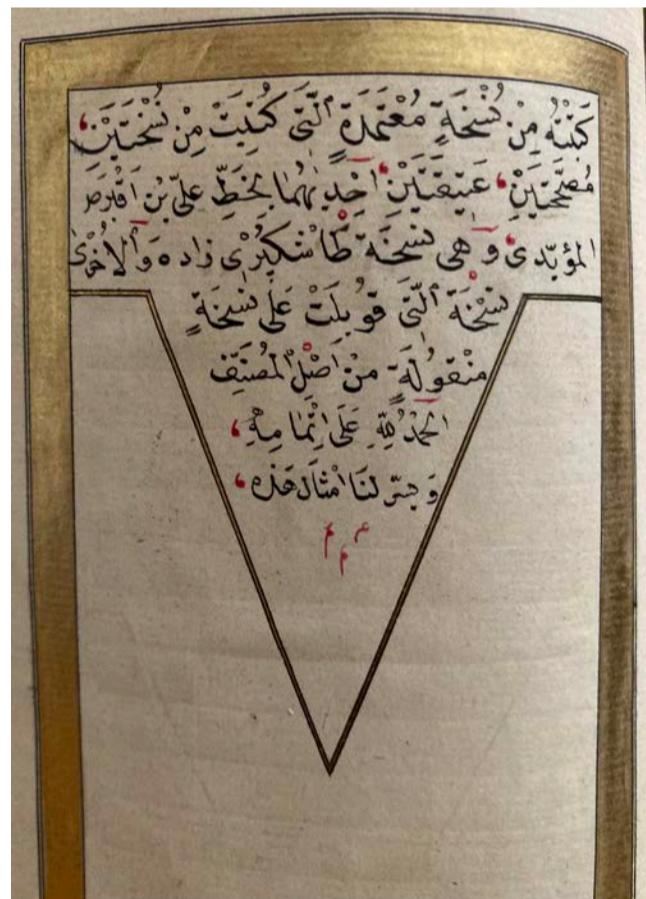 كَتَبْتُهُ مِنْ نُسْخَةٍ مُعْتَمَدَةٍ ٱلَّتِى كُتِبَتْ مِنْ نُسْخَتَيْنِ،
مُصَحَّحَتَيْنِ، عَتِيقَتَيْنِ، اِحْدٰيهُمَا بِخَطِّ عَلِىّ بْنِ
المؤيّدى، وَهِىَ نُسْخَة طَاشْكُپْرِى زاده وَٱلْاُخْرٰى
نُسْخَة ٱلَّتِى قُوبِلَتْ عَلَى نُسْخَةٍ
مَنْقُولَةٍ مِنْ اَصْلِ ٱلْمُصَنِّف
الحَمْدُ لِلّٰهِ عَلَى اِتْمَامِهِ،
وَيَسَّرَ لَنَا اَمْثَالَ هَذِه،
م م م